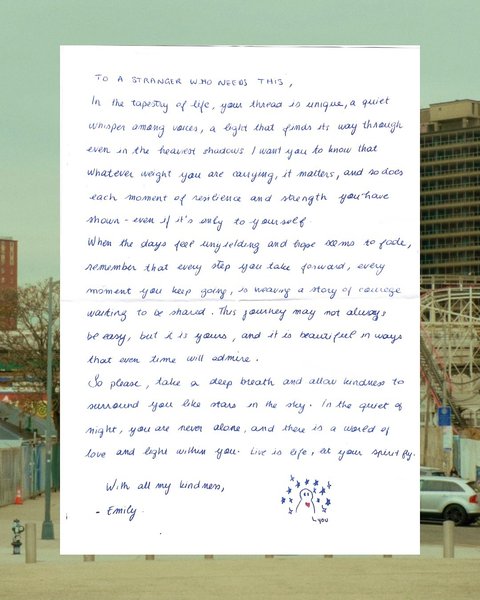 TO A STRANGER WHO NEEDS THIS,
In the tapestry of life, your thread is unique, a quiet
whisper among voices, a light that finds its way through
even in the heaviest shadows I want you to know that
whatever weight you are carrying, it matters, and so does
each moment of resilience and strength you have
shown - even if it's only to yourself.
When the days feel unyielding and hope seems to fade,
remember that every step you take forward, every
moment you keep going, is weaving a story of courage
waiting to be shared. This journey may not always
be easy, but it is yours, and it is beautiful in ways
that even time will admire.
So please, take a deep breath and allow kindness to
surround you like stars in the sky. In the quiet of
night, you are never alone, and there is a world of
love and light within you. Live is life, let your spirit fly.
With all my kindness,
- Emily.
you